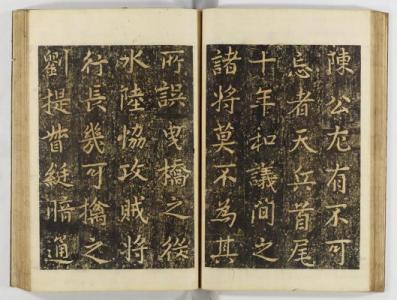 陳公尤有不可
忘者天兵首尾
十年和議間之
諸将莫不為其
所誤曳橋之役
水陸恊攻賊将
行長幾可擒之
劉提督綎暗通